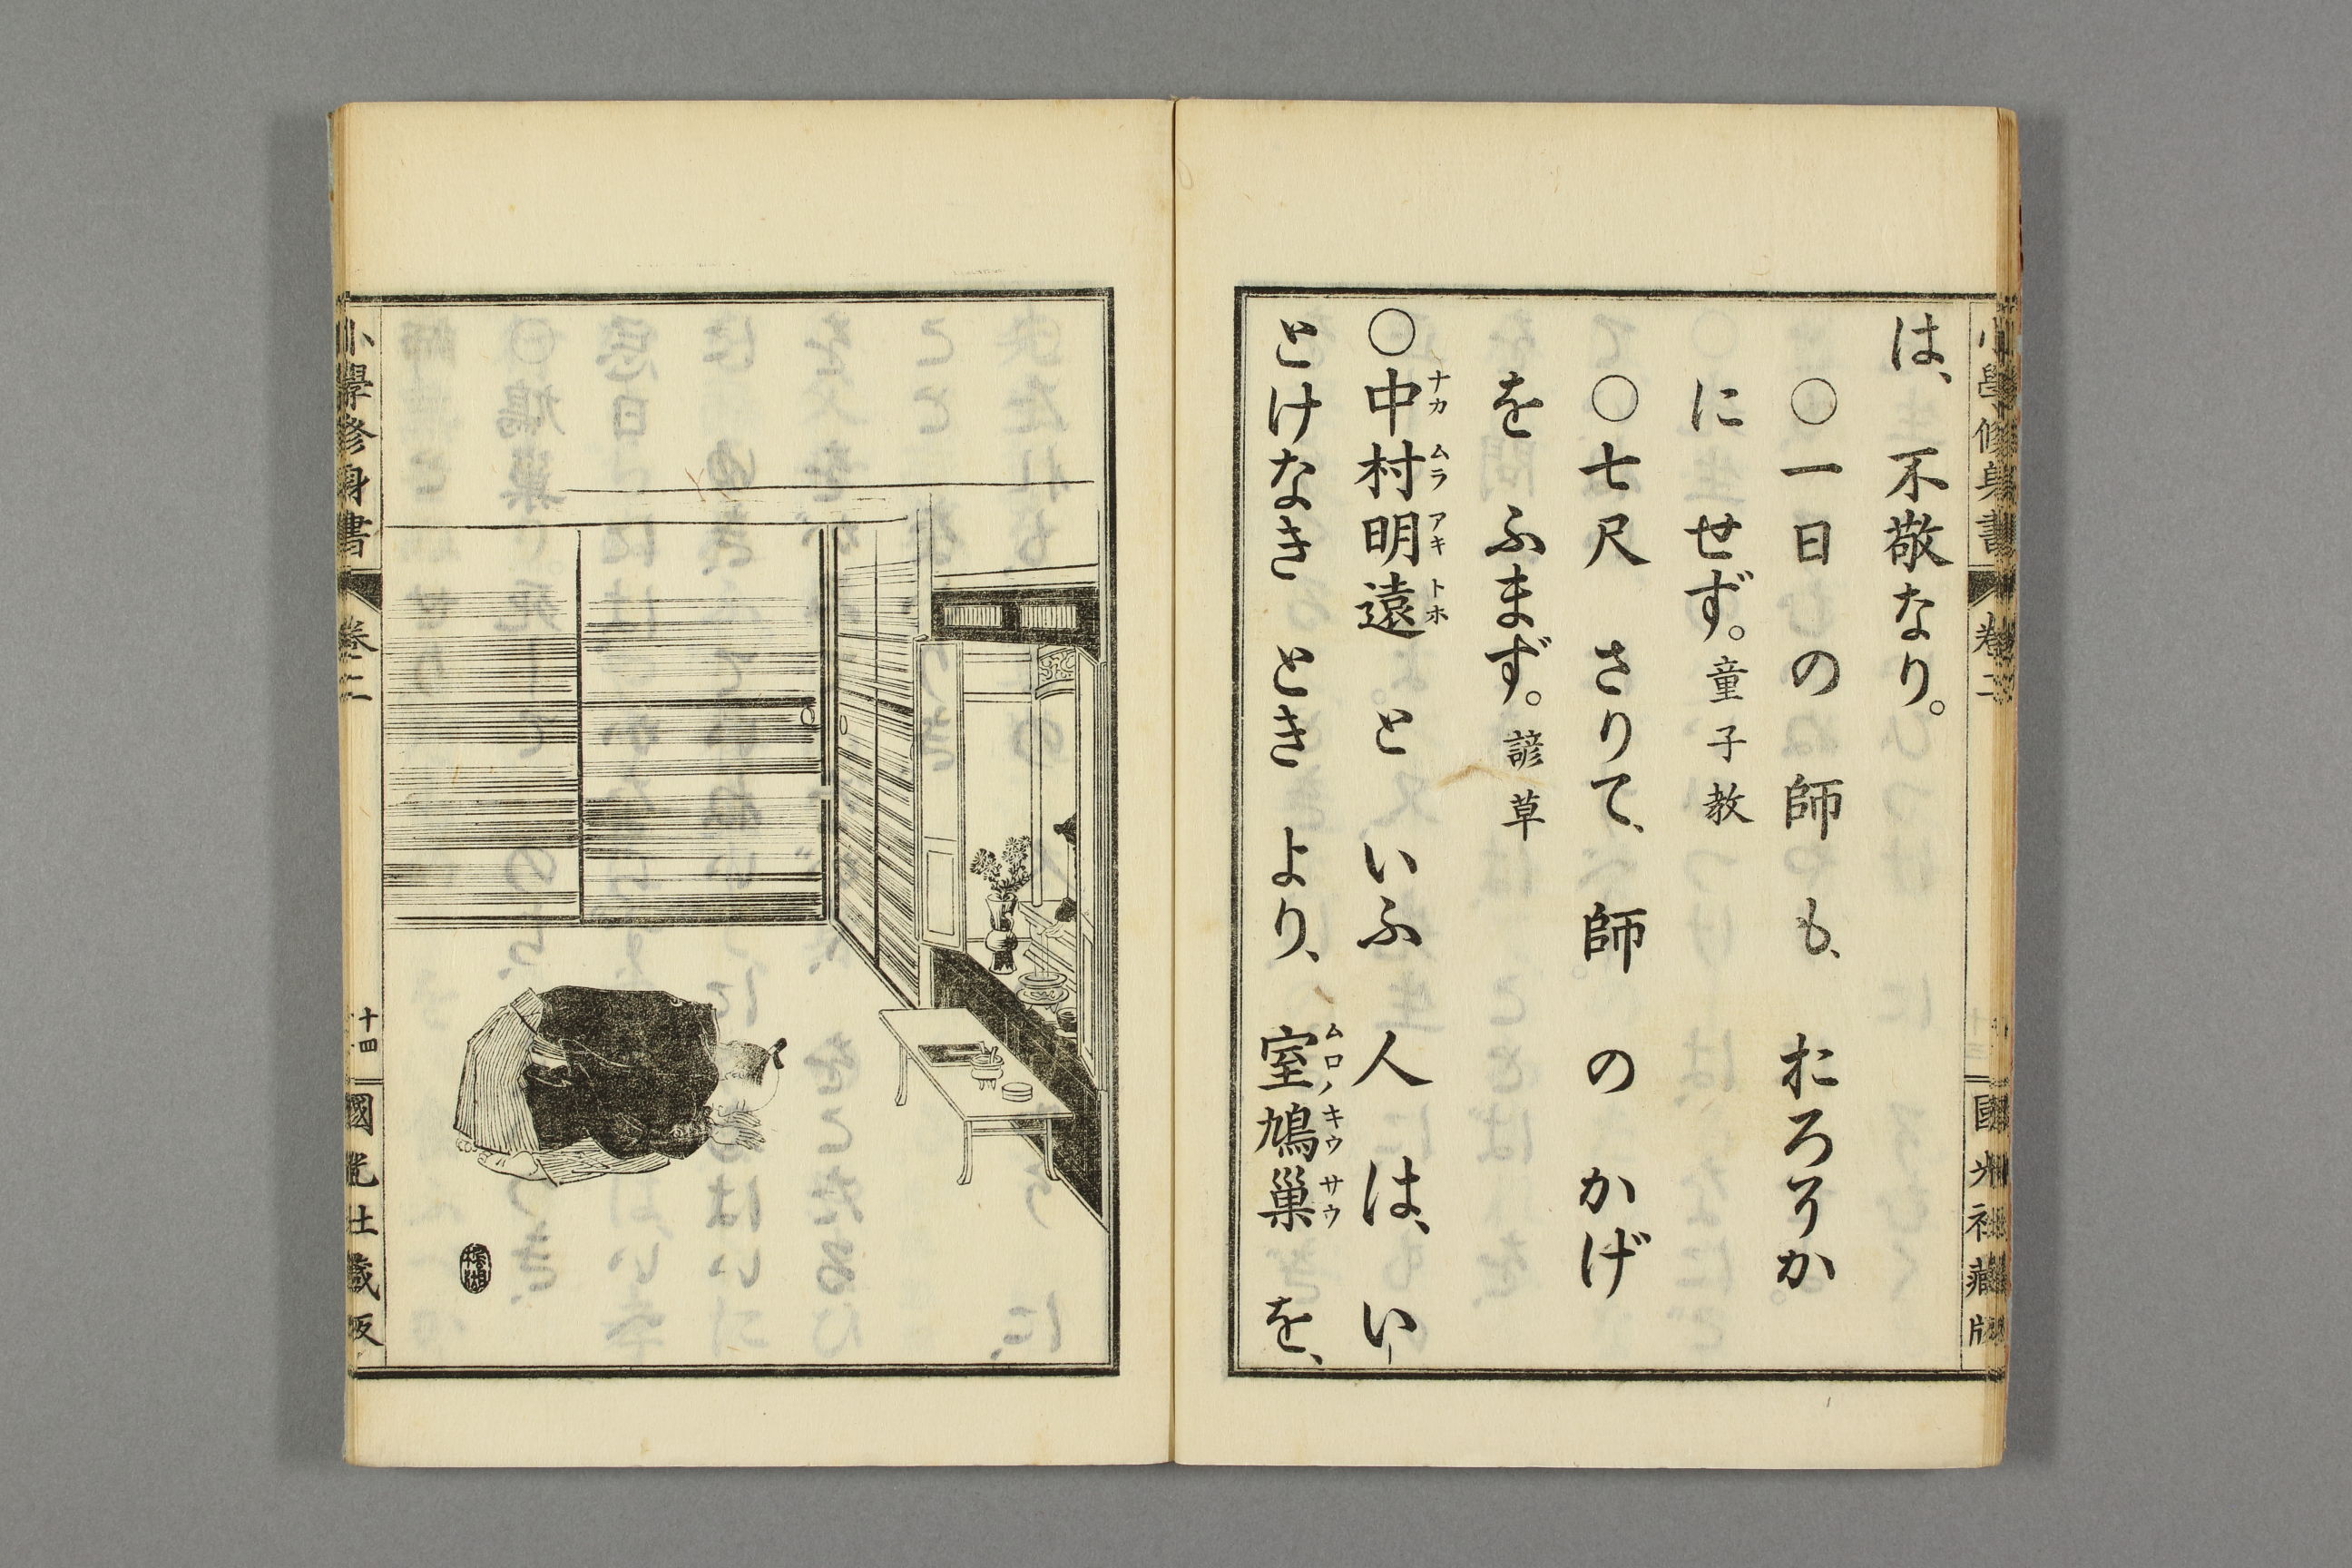 小學修身書 卷二 國光社藏版
は、不敬なり。
○一日の師も、おろそか
にせず。童子教
○七尺さりて、師のかげ
をふまず。諺草
○中村明遠といふ人は、い
ナカ ムラ アキ トホ
とけなきときより、室鳩巢を、
ムロノ キウ サウ
小學修身書 卷二 十四 國光社藏版